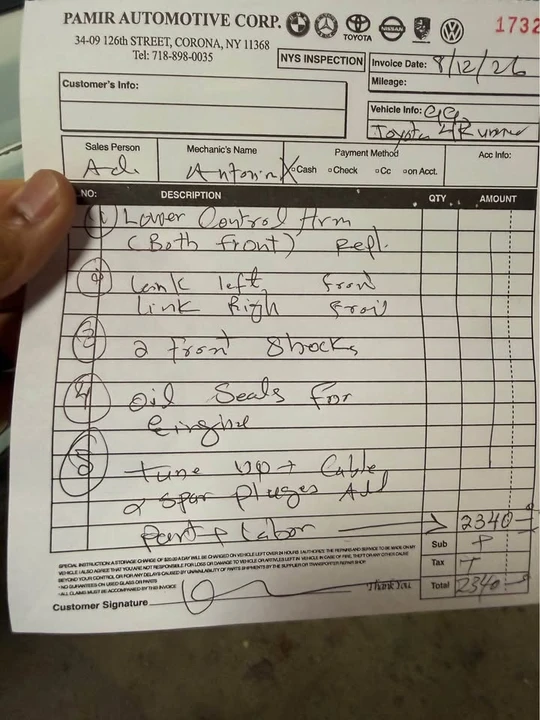 PAMIR AUTOMOTIVE CORP.
TOYOTA
NISSAN
1732
34-09 126th STREET, CORONA, NY 11368
Tel: 718-898-0035
NYS INSPECTION
Invoice Date: 8/12/26
Mileage:
Customer's Info:
Vehicle Info: 99
Toyota 4Runner
Sales Person
Mechanic's Name
Payment Method
Acc Info:
Adi
Antonin
X Cash Check Cc on Acct.
NO: DESCRIPTION QTY. AMOUNT
1 Lower Control Arm
(Both front) Repl.
2 Link left front
Link Righ front
3 2 front Shocks
4 Oil Seals For
Einghe
5 tune up + Cable
& spar pluges All
part + Labor > 2340
Sub
SPECIAL INSTRUCTION A STORAGE CHARGE OF $20.00 A DAY WILL BE CHARGED ON VEHICLE LEFT OVER 24 HOURS. I AUTHORIZE THE REPAIRS AND SERVICE TO BE MADE ON MY
VEHICLE I ALSO AGREE THAT YOU ARE NOT RESPONSIBLE FOR LOSS OR DAMAGE TO VEHICLE OR ARTICLES LEFT IN VEHICLE IN CASE OF FIRE, THEFT OR ANY OTHER CAUSE
BEYOND YOUR CONTROL OR FOR ANY DELAYS CAUSED BY UNAVAILABILITY OF PARTS SHIPMENTS BY THE SUPPLIER OR TRANSPORTER REPAIR SHOP.
Tax
-NO GURANTEES ON USED GLASS OR PARTS
-ALL CLAIMS MUST BE ACCOMPANIED BY THIS INVOICE
Thank You
Total 2340
Customer Signature